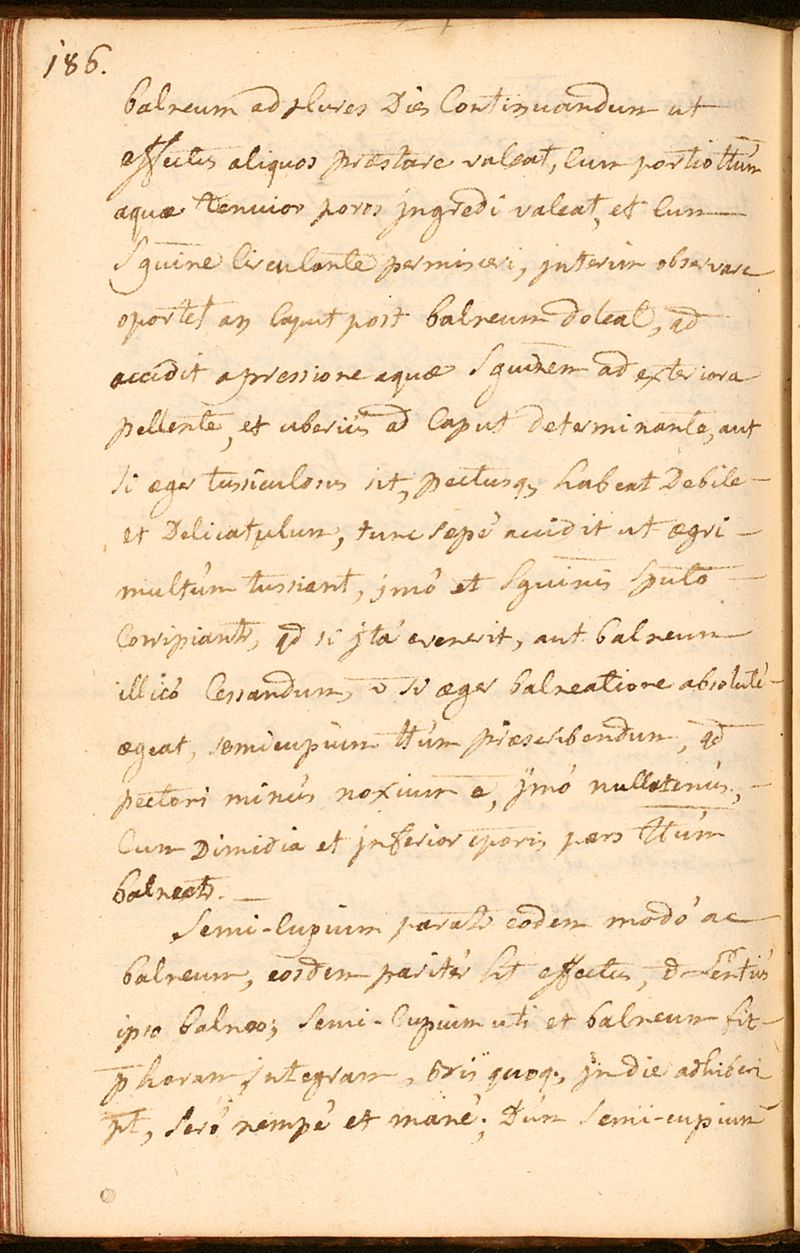 186.
balneum ad plures Dies Continuandum ut
effectus aliquos præstare valeat, Cum portio ttum
aquæ tenuior poros jngredi valeat, et Cum
Sguine Circulante permisceri, jnterim observare
oportet an Caput post balneum doleat, qd
accidit a pressione aquæ Sguinem ad exteriora
pellente, et uberius ad Caput determinante, aut
si æger tussiculosus sit, pectusq, habeat Debile
et Delicatulum, tunc sæpè accidit ut ægri
multùm tussiant, jmò et Sguinis Sputo
Corripiantr, qd si jtà evenerit, aut balneum
illicò Cessandum, si æger balneatione absolutè
ægeat, semicupium ttùm præscribendum, qd
pectori minùs noxium e, jmò nullatenùs,
Cum Dimidia et jnferior cporis pars ttùm
balneatr.
Semi-Cupium paratr eodem modò ac
balneum, eosdem paritèr ht effectus,
ipso balneo; Semi-Cupium uti et balneum fit
p horam jntegram, bis quoq, jn die adhiberi
pt, serò nempè et manè; Dùm Semi-cupium